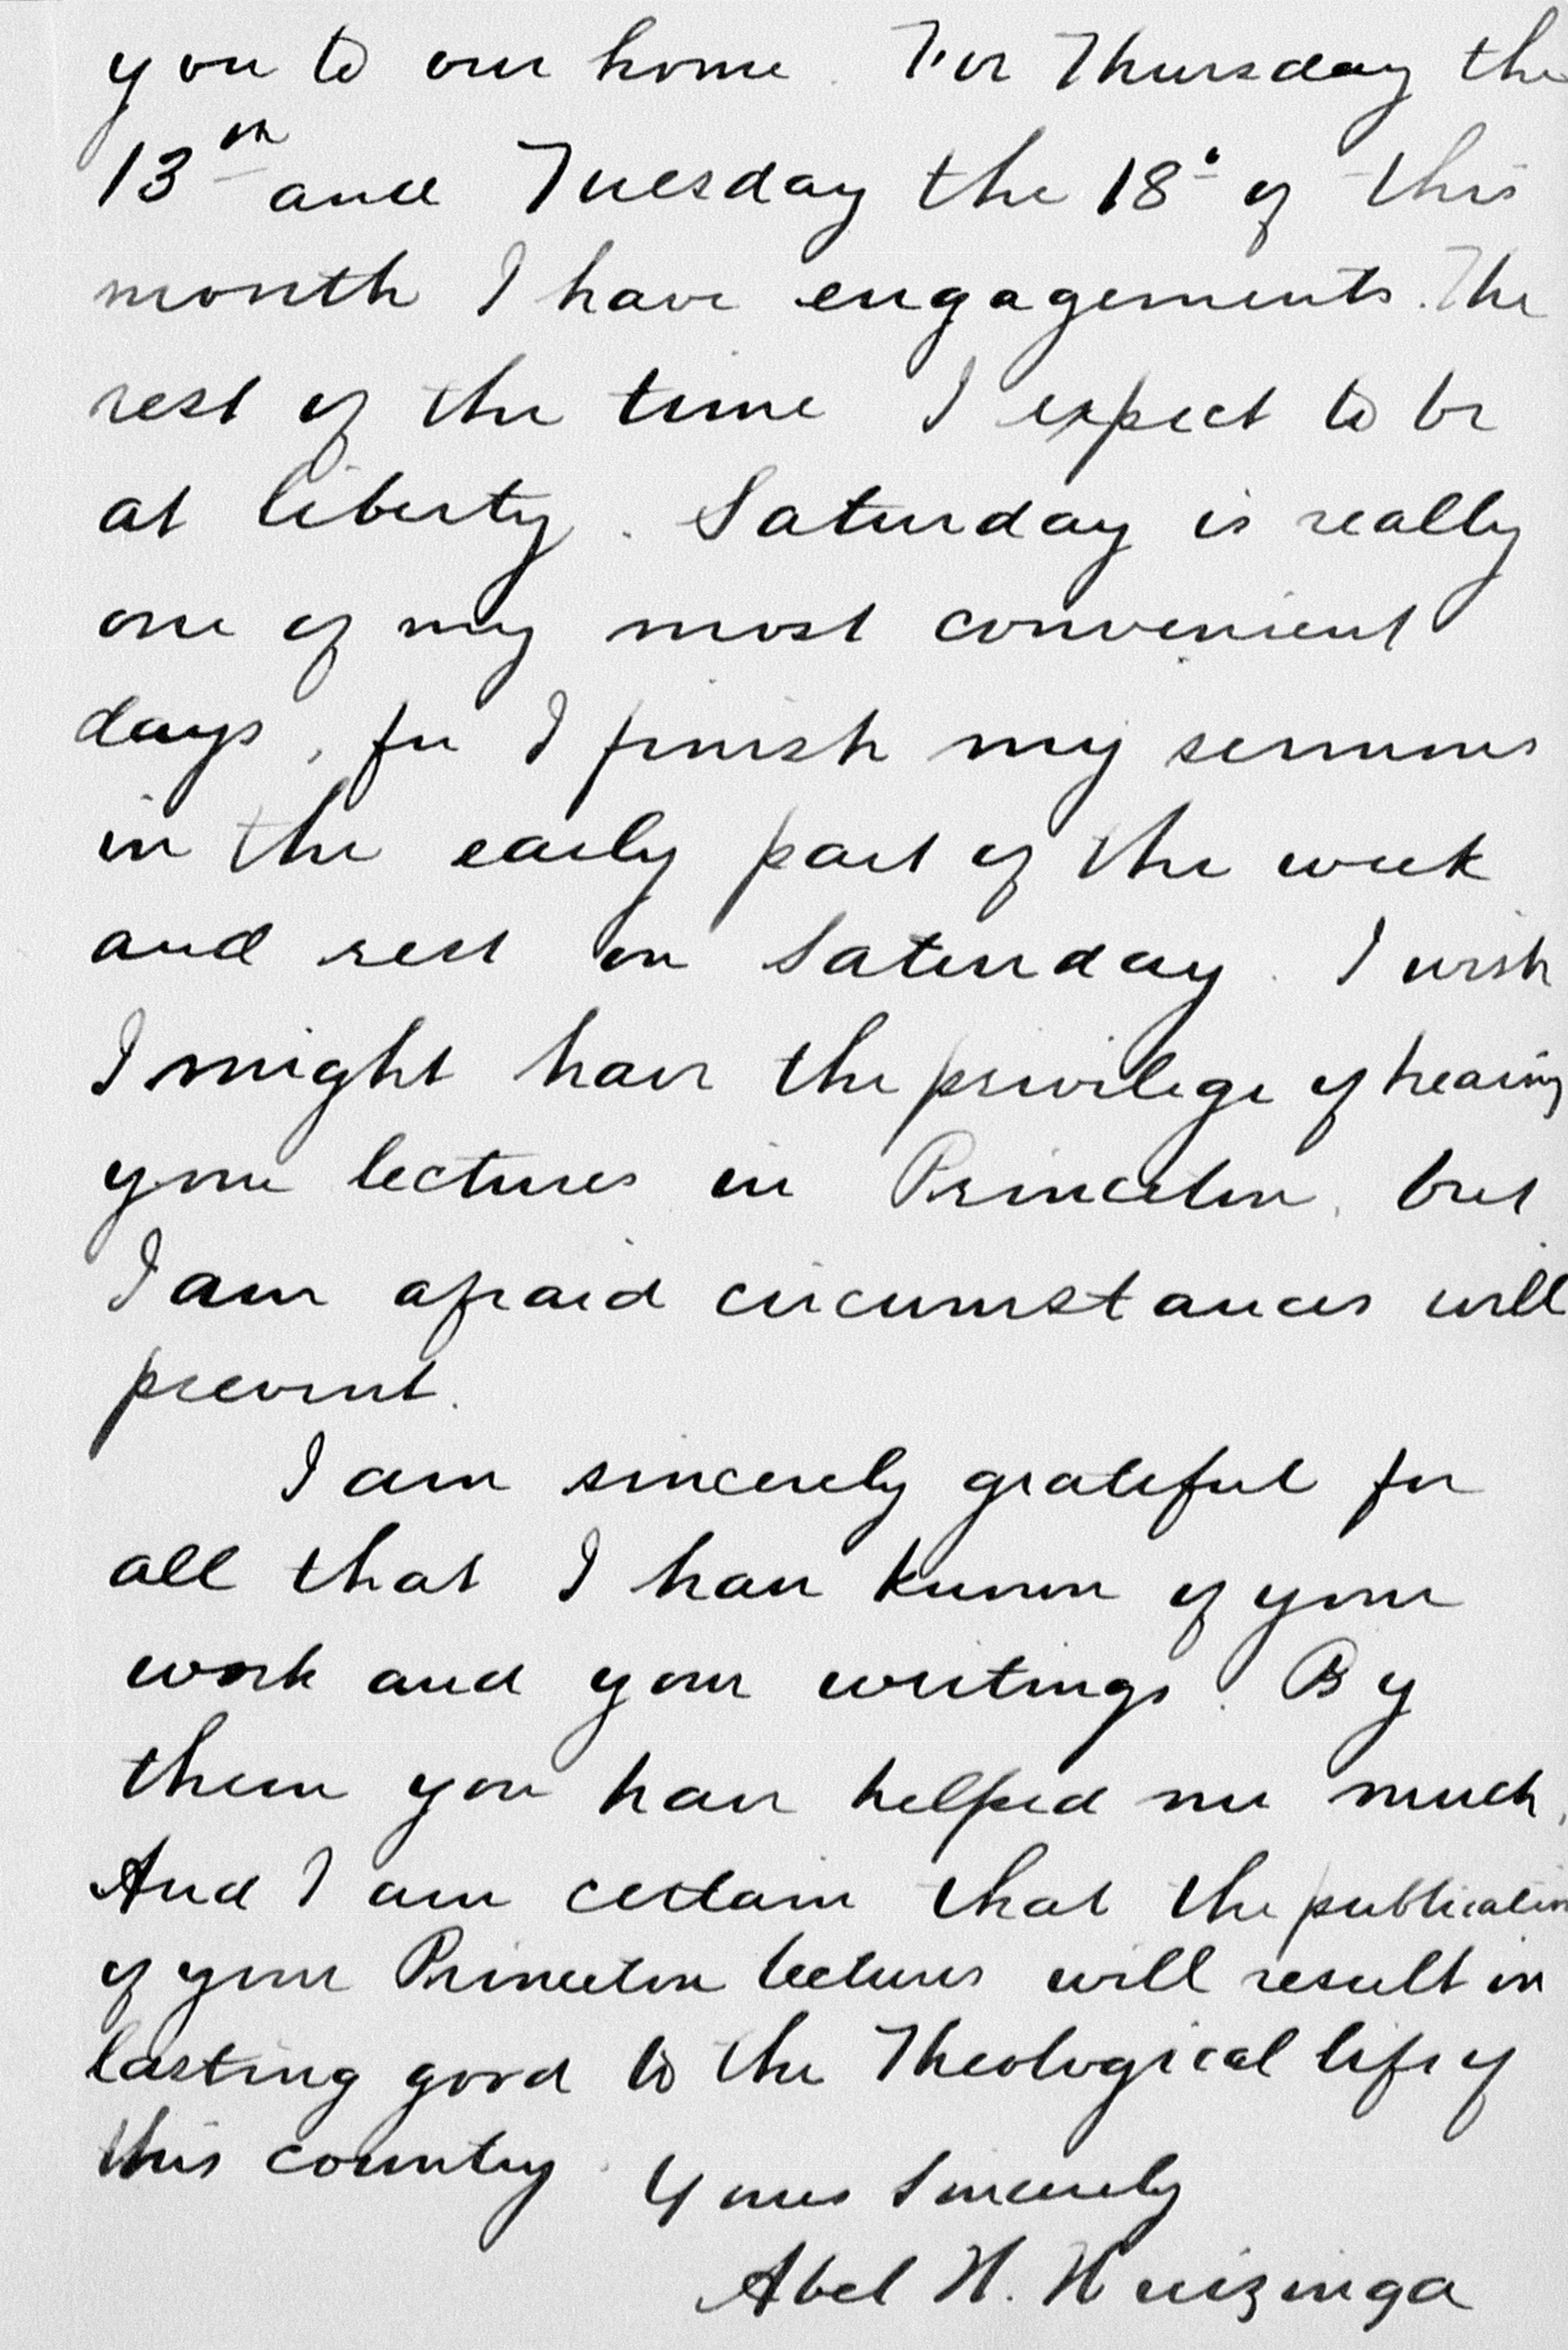 you to our home. For Thursday the
13th and Tuesday the 18th of this
month I have engagements. The
rest of the time I expect to be
at liberty. Saturday is really
one of my most convenient
days, for I finish my sermons
in the early part of the week
and rest on Saturday. I wish
I might have the privilege of hearing
your lectures in Princeton, but
I am afraid circumstances will
prevent.
I am sincerely grateful for
all that I have known of your
work and your writings. By
them you have helped me much.
And I am certain that the publication
of your Princeton lectures will result in
lasting good to the Theological life of
this country. Yours Sincerely
Abel H. Huizinga